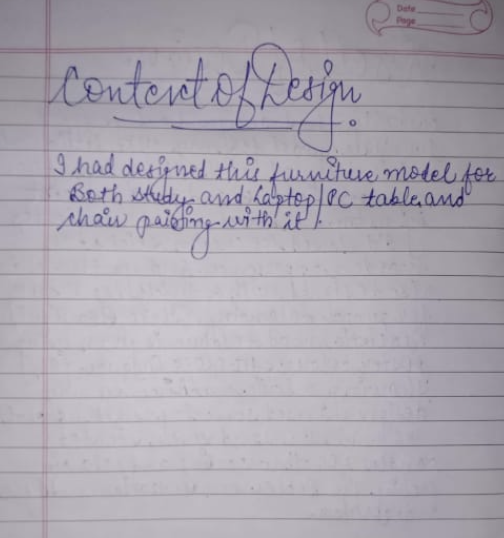 Date
Page
Context of Design.
I had designed this furniture model for
Both study and Laptop/PC table, and
chair pairing with it.